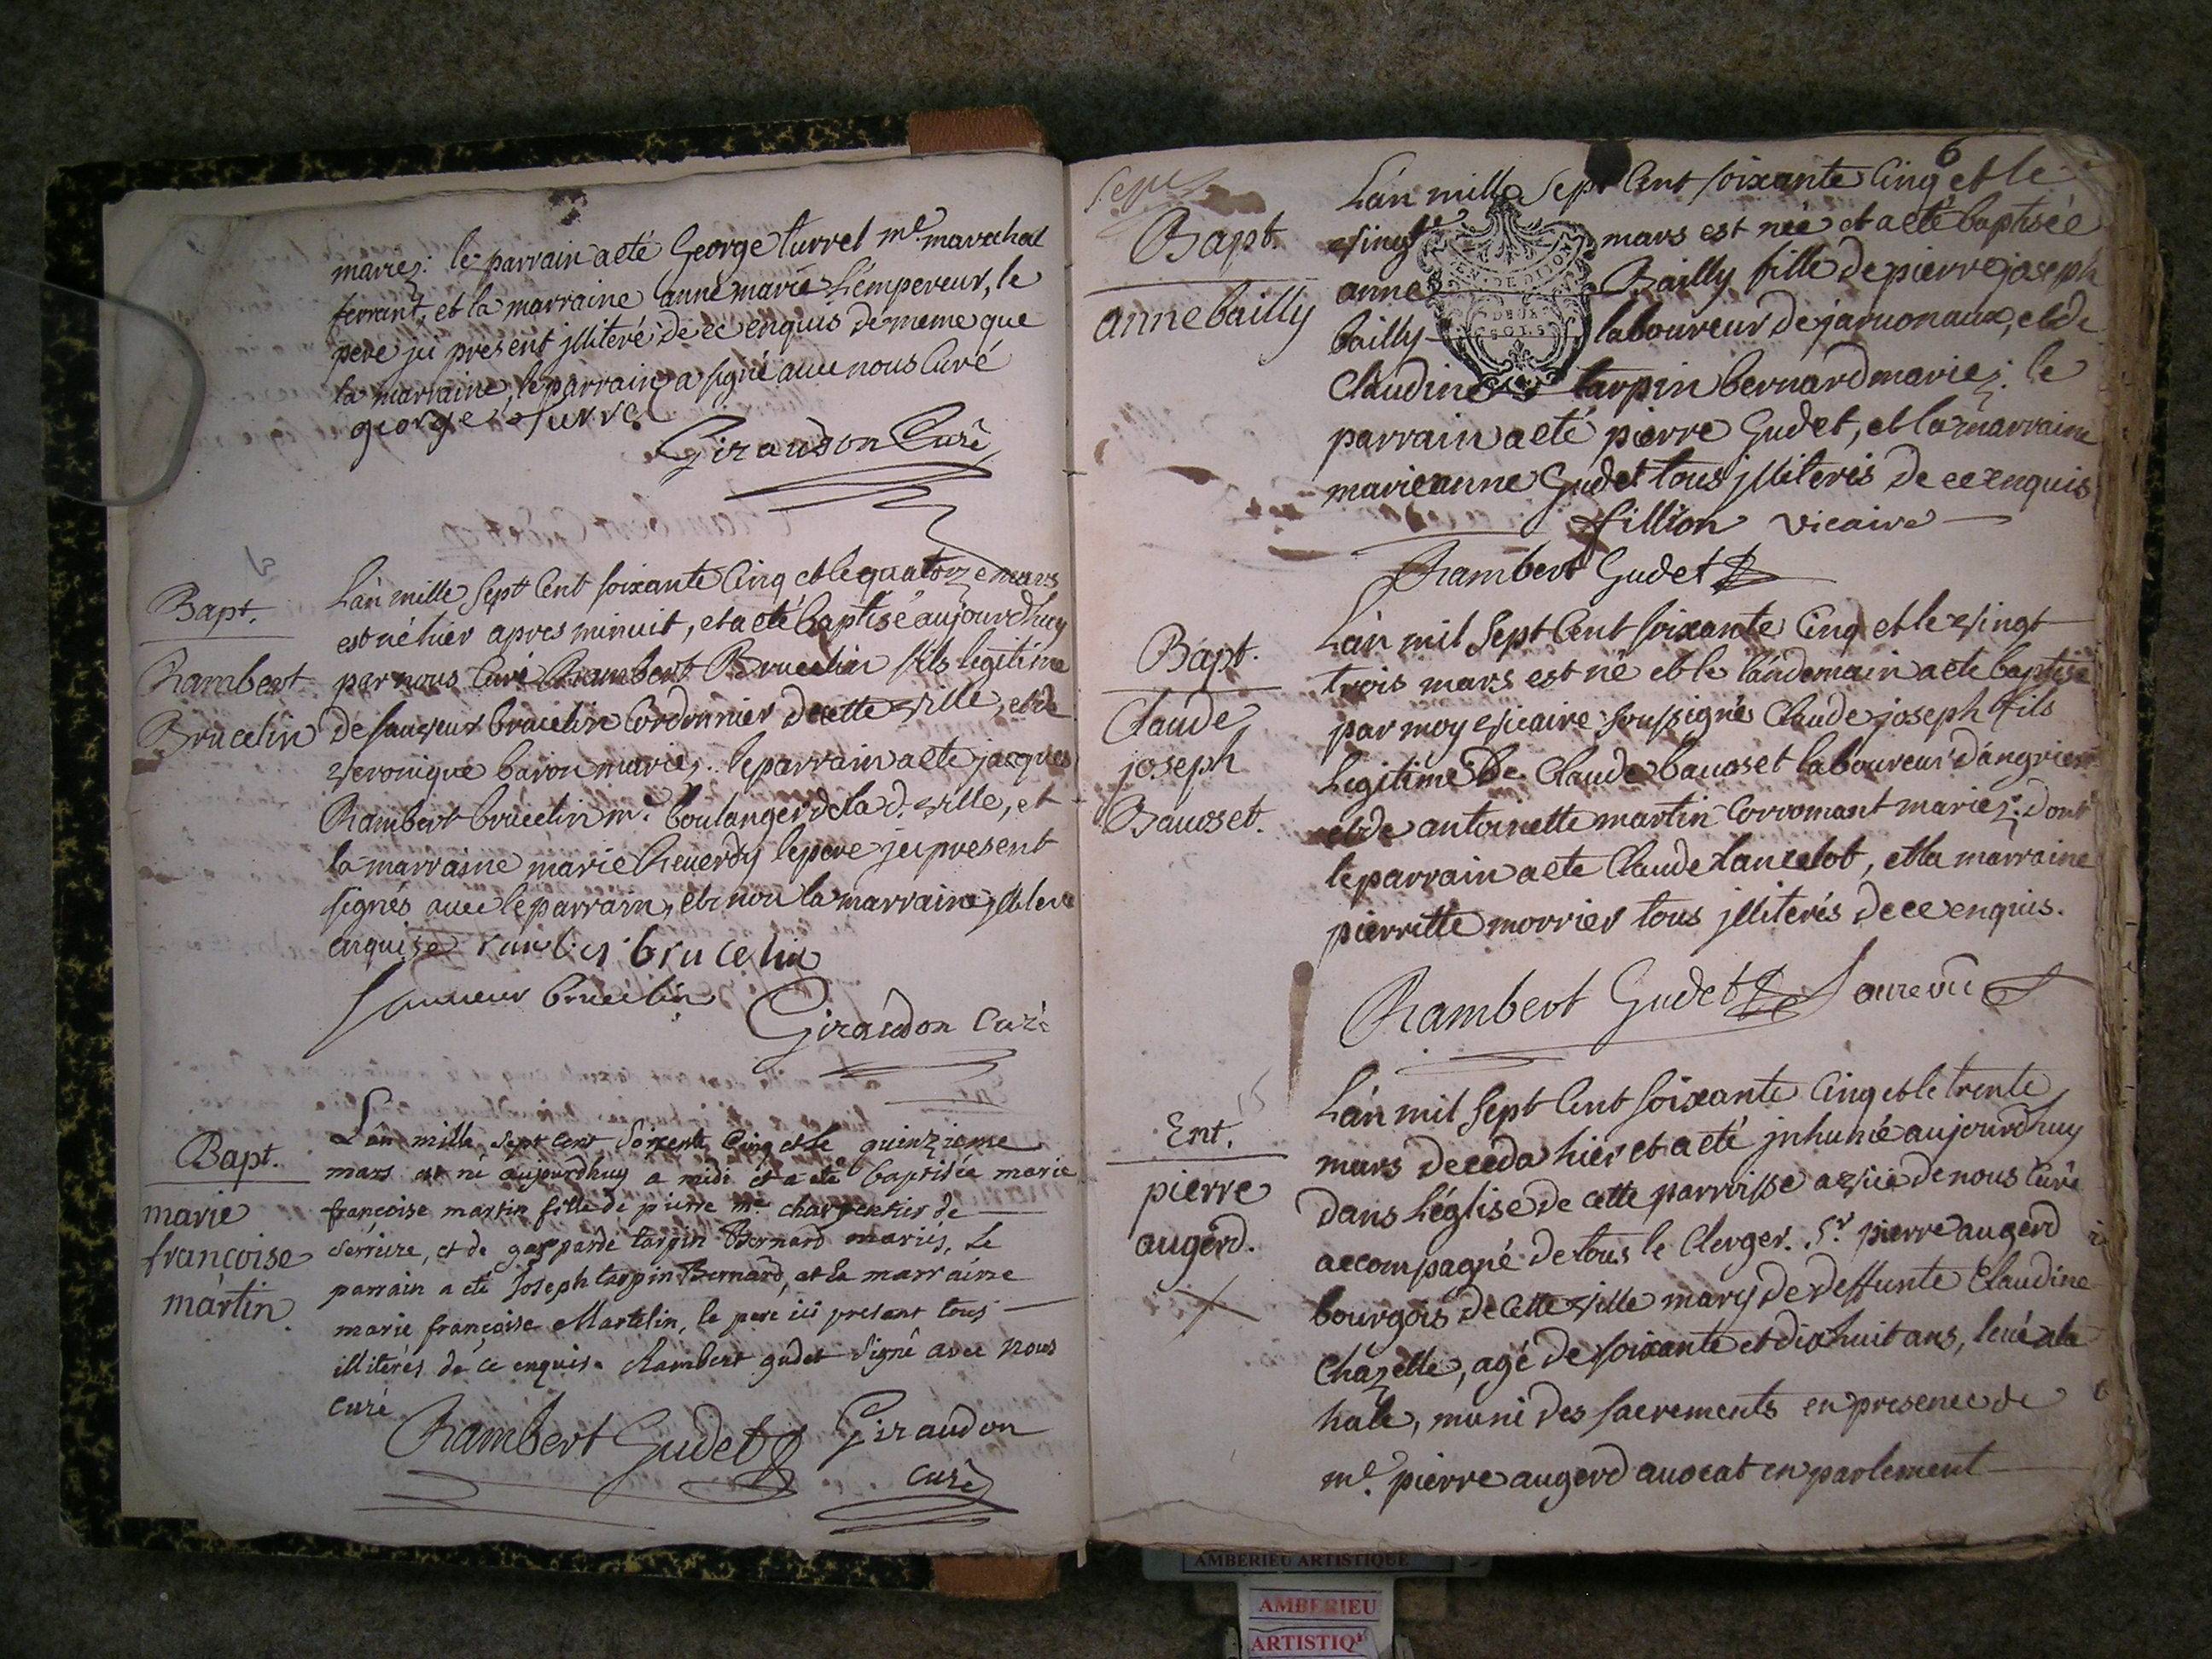 mariez: le parrain a eté George turrel me. marechal
ferrant, et la marraine anne marie L'empereur, le
pere jci present jlliteré de ce enquis de meme que
la marraine, le parrain a signé avec nous Curé
george turrel
Giraudon Curé
Bapt.
Rambert
Brucelin
L'an mille Sept Cent soixante Cinq et le quatorze mars
est né hier apres minuit, et a eté baptisé aujourdhuy
par nous Curé Rambert Brucelin fils legitime
de sauveur brucelin Cordonnier de cette ville, et de
veronique baron mariez. le parrain a eté jacques
Rambert brucelin me. boulanger de la d. ville, et
la marraine marie Reverdy le pere jci present
signés avec le parrain, et non la marraine jllitere
enquise brucelin
sauveur brucelin
Giraudon Curé
Bapt.
marie
françoise
martin
L'an mille Sept Cent Soixente Cinq et le quinzieme
mars est né aujourdhuy a midi et a eté baptisée marie
françoise martin fille de pierre me charpentier de
Serriere, et de gasparde tarpin Bernard mariés, Le
parrain a eté Joseph tarpin Bernard, et la marraine
marie françoise Martelin, le pere ici present tous
illiterés de ce enquis. Rambert gudet Signé avec nous
curé
Rambert Gudet
Giraudon
curé
6
Bapt.
anne bailly
L'an mille Sept Cent soixante Cinq et le
vingt mars est née et a eté baptisée
anne Bailly fille de pierre joseph
bailly laboureur de jarvonaux, et de
Claudine tarpin bernard mariez: le
parrain a eté pierre Gudet, et la marraine
marieanne Gudet tous jlliterés de ce enquis
fillion vicaire
Rambert Gudet
GEN DE DIJON
DEUX
SOLS
Bapt.
Claude
joseph
Bavoset.
L'an mil Sept Cent soixante Cinq et le vingt
trois mars est né et le landemain a eté baptisé
par moy vicaire soussigné Claude joseph fils
Legitime de Claude bavoset laboureur d'angrieres
et de antoinette martin Corromant mariez: dont
le parrain a eté Claude Lancelot, et la marraine
pierrette morrier tous jlliterés de ce enquis.
Rambert Gudet
Ent.
pierre
augerd.
L'an mil Sept Cent soixante Cinq et le trente
mars deceda hier et a eté jnhumé aujourdhuy
dans L'église de cette parroisse a vie de nous Curé
accompagné de tous le Clergez. Sr. pierre augerd
bourgois de Cette ville mary de deffunte Claudine
Chazelle, agé de soixante et dixhuit ans, levé a la
hale, muni des sacrements en presence de
me. pierre augerd avocat en parlement
AMBERIEU ARTISTIQUE
AMBERIEU
ARTISTIQ